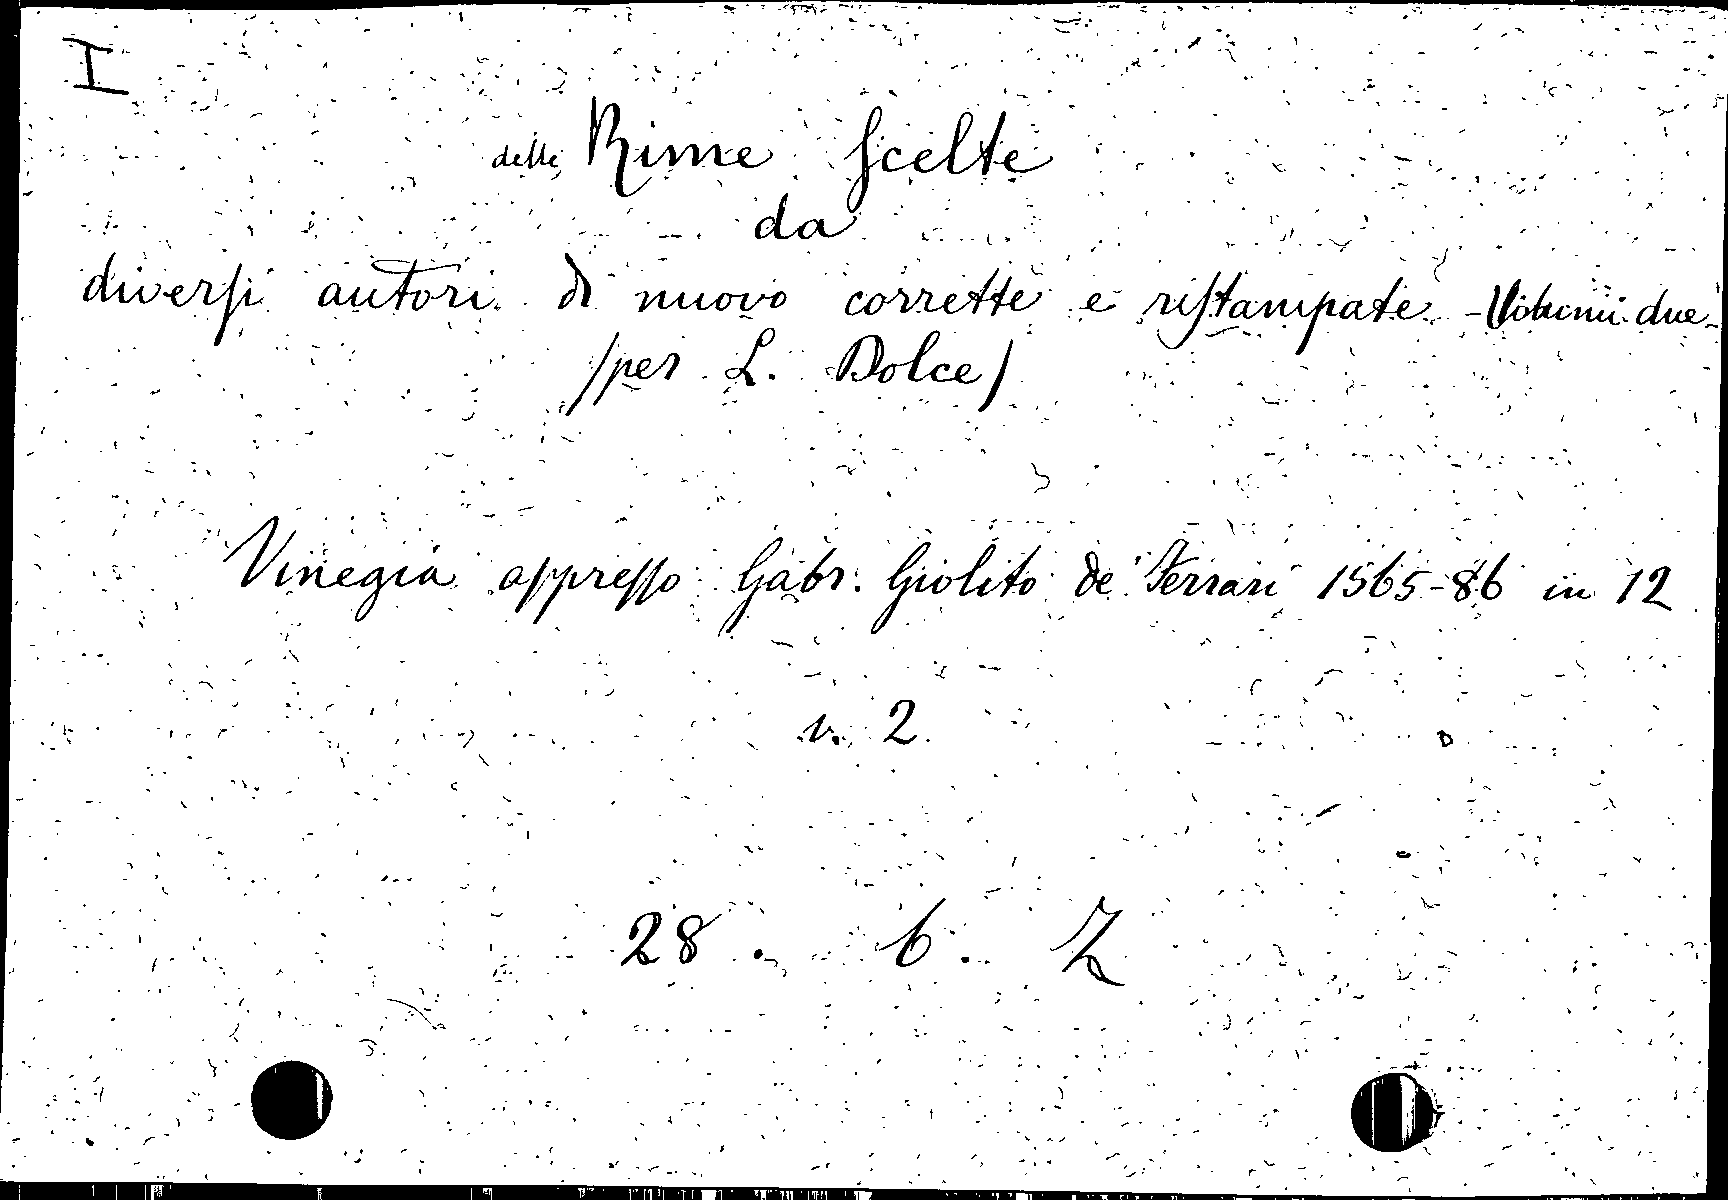 I
delle Rime scelte
da
diversi autori di nuovo corrette e ristampate - Volumi due -
(per L. Dolce)
Vinegia appresso Gabr. Giolito de' Ferrari 1565-86 in 12
v. 2.
28. 6. Z